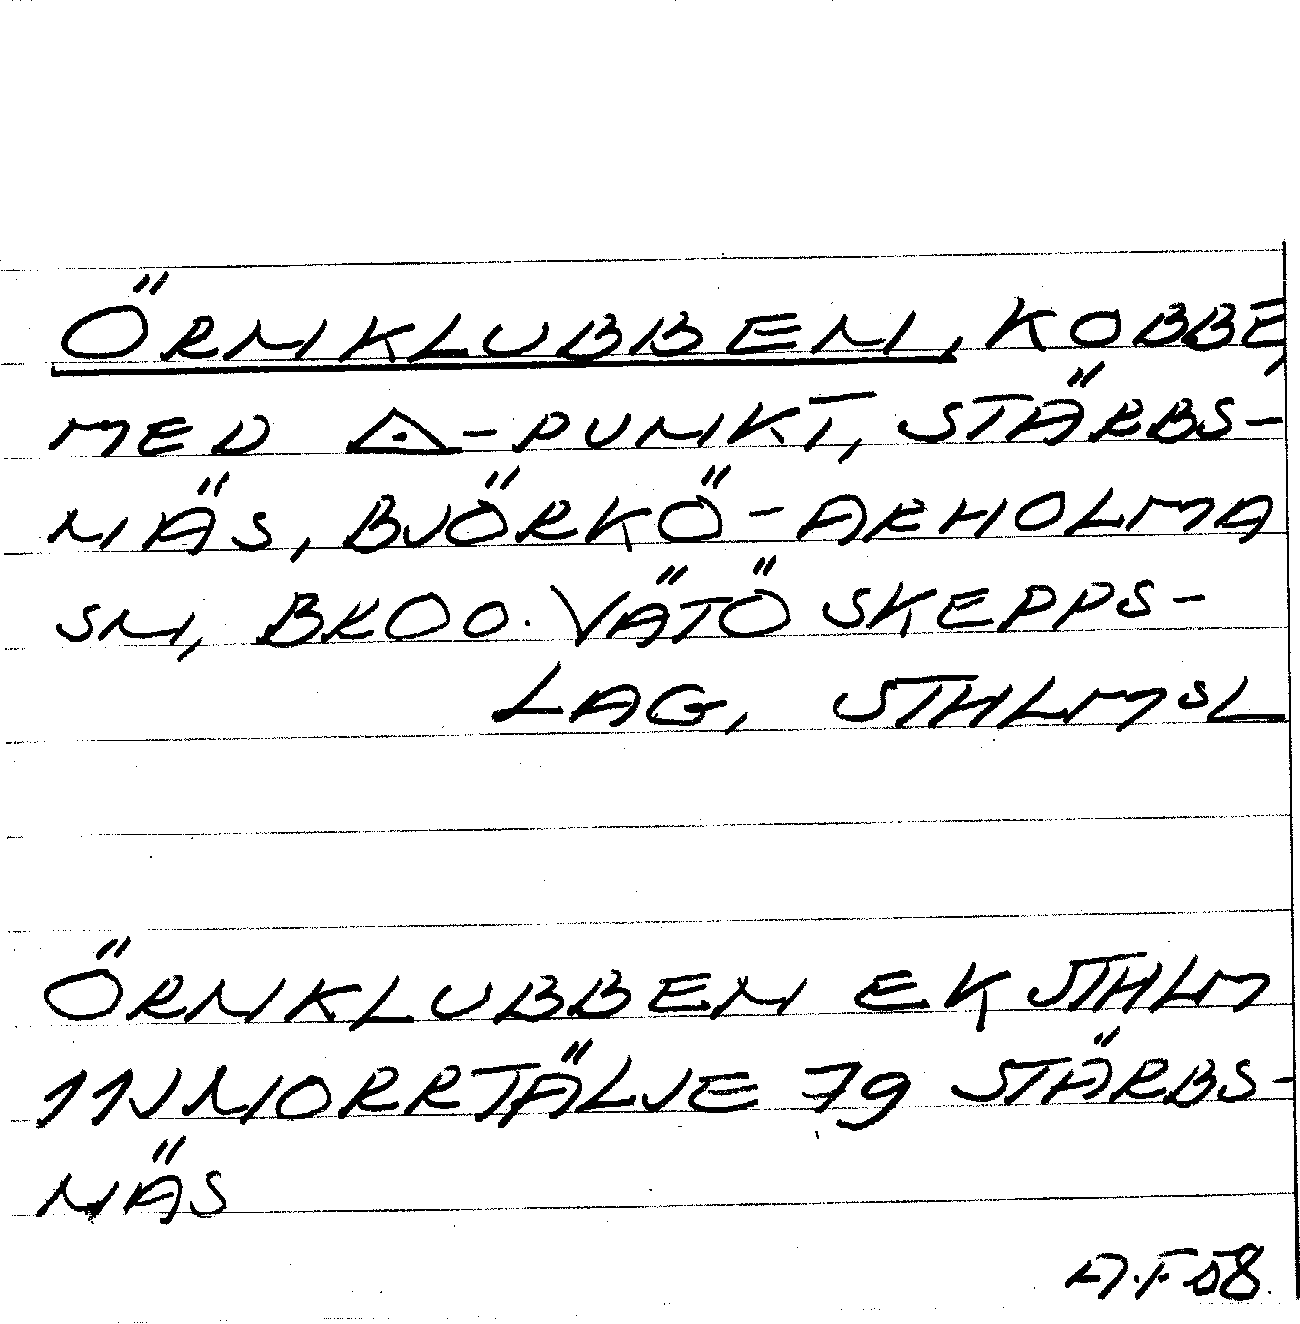 ÖRNKLUBBEN, KOBBE,
MED △-PUNKT, STÄRBS-
NÄS, BJÖRKÖ-ARHOLMA
SN, BRO O. VÄTÖ SKEPPS-
LAG, STHLMSL
ÖRNKLUBBEN EK STHLM
11J NORRTÄLJE 79 STÄRBS-
NÄS
A.F. 58.